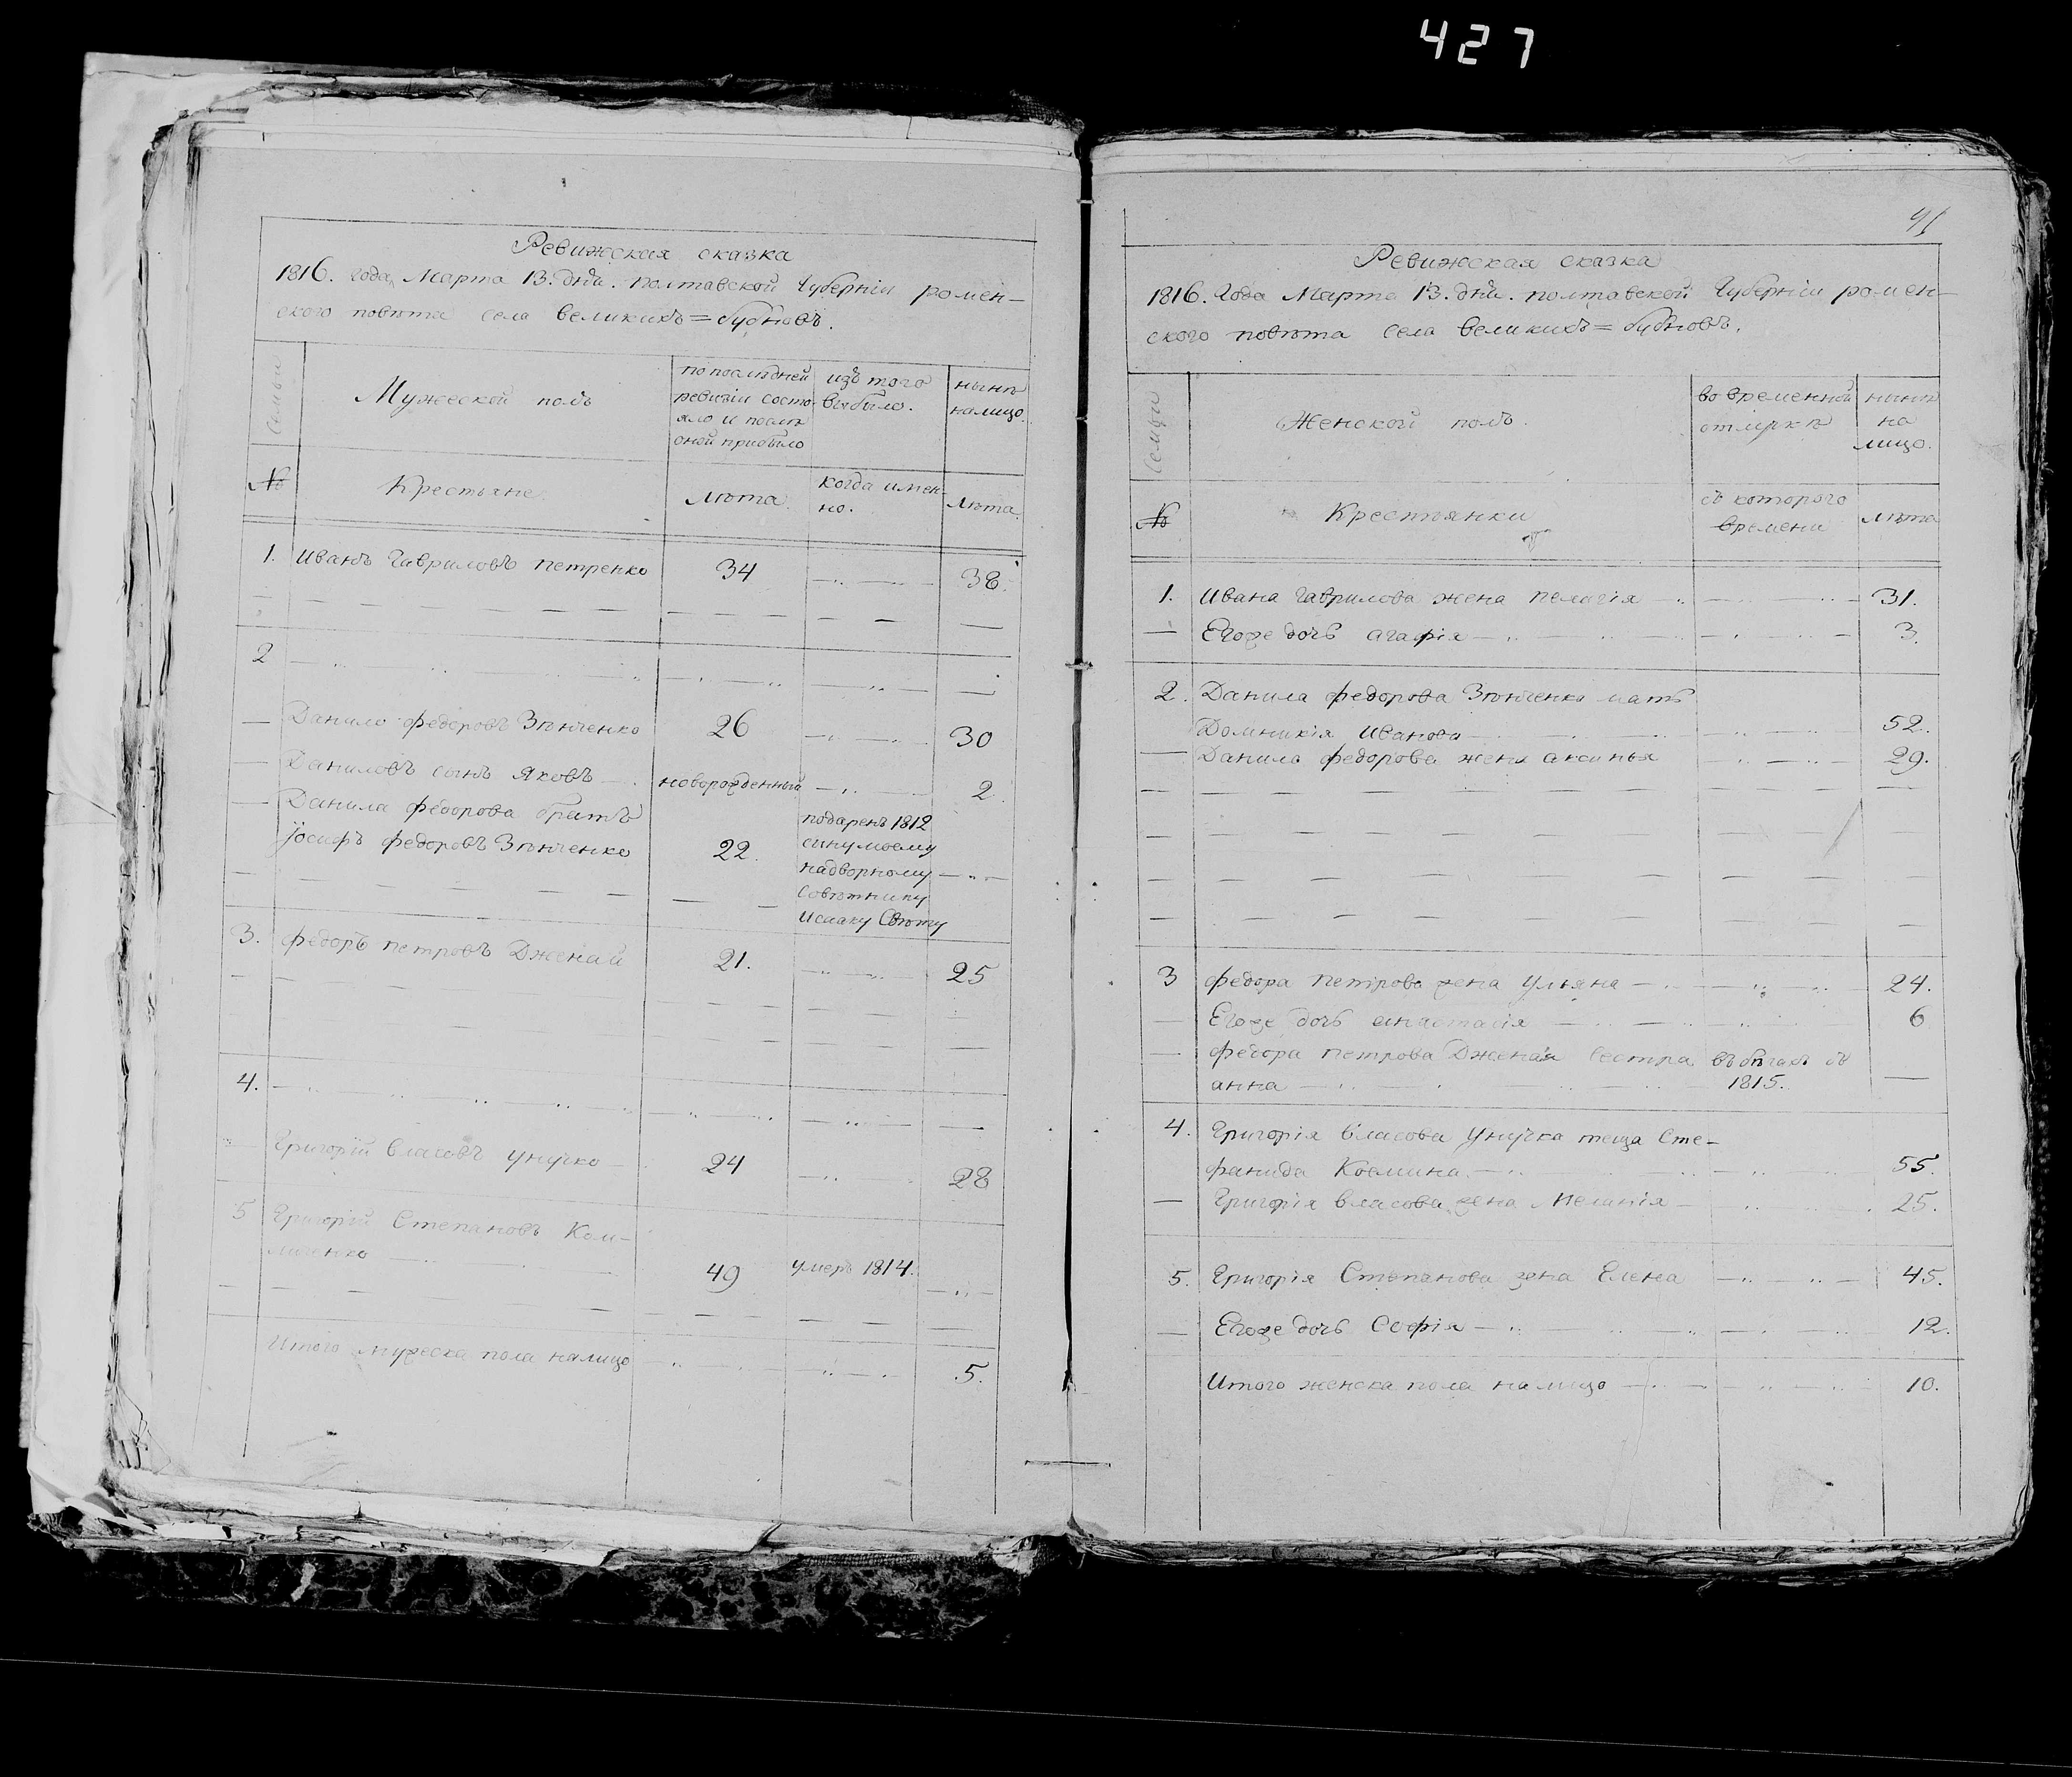 427
Ревижская сказка
1816. года Марта 13. дня. полтавской Губерніи ромен-
ского повѣта села великихъ=бубновъ.
Семьи
Мужеской полъ
по последней
ревизіи состо-
яло и послѣ
оной прибыло
изъ того
выбыло.
нынѣ
налицо.
№
Крестьяне
лѣта.
когда имен-
но.
лѣта.
1. Иванъ Гавриловъ петренко 34 38.
2
Данило федоровъ Зѣнченко 26 30
Даниловъ сынъ Яковъ новорожденный 2
Данила федорова братъ
Іосифъ федоровъ Зѣнченко 22.
подаренъ 1812
сину моему
надворному
совѣтнику
Исааку Свѣту
3. федоръ петровъ Дженай 21. 25
4.
Григорій власовъ унучко 24 28
5 Григорій Степановъ Ком-
личенко 49 умеръ 1814.
Итого мужеска пола налицо 5.
91
Ревижская сказка
1816. Года Марта 13. дня. полтавской Губерніи ромен-
ского повѣта села великихъ=бубновъ.
Семьи
Женской полъ.
во временной
отлучкѣ
нынѣ
на
лицо.
№
Крестьянки
съ которого
времени
лѣта
1. Ивана Гаврилова жена пелагія 31.
Егоже дочь агафія 3.
2. Данила федорова Зѣнченка мать
Домникія Иванова 52.
Данила федорова жена аксинья 29.
3 федора петрова жена ульяна 24.
Егоже дочь анастасія 6
федора петрова Дженая сестра въ бѣгахъ съ
анна 1815.
4. Григорія власова унучка теща Сте-
фанида Козмина 55.
Григорія власова жена Меланія 25.
5. Григорія Степанова жена Елена 45.
Егоже дочь Софія 12.
Итого женска пола налицо 10.